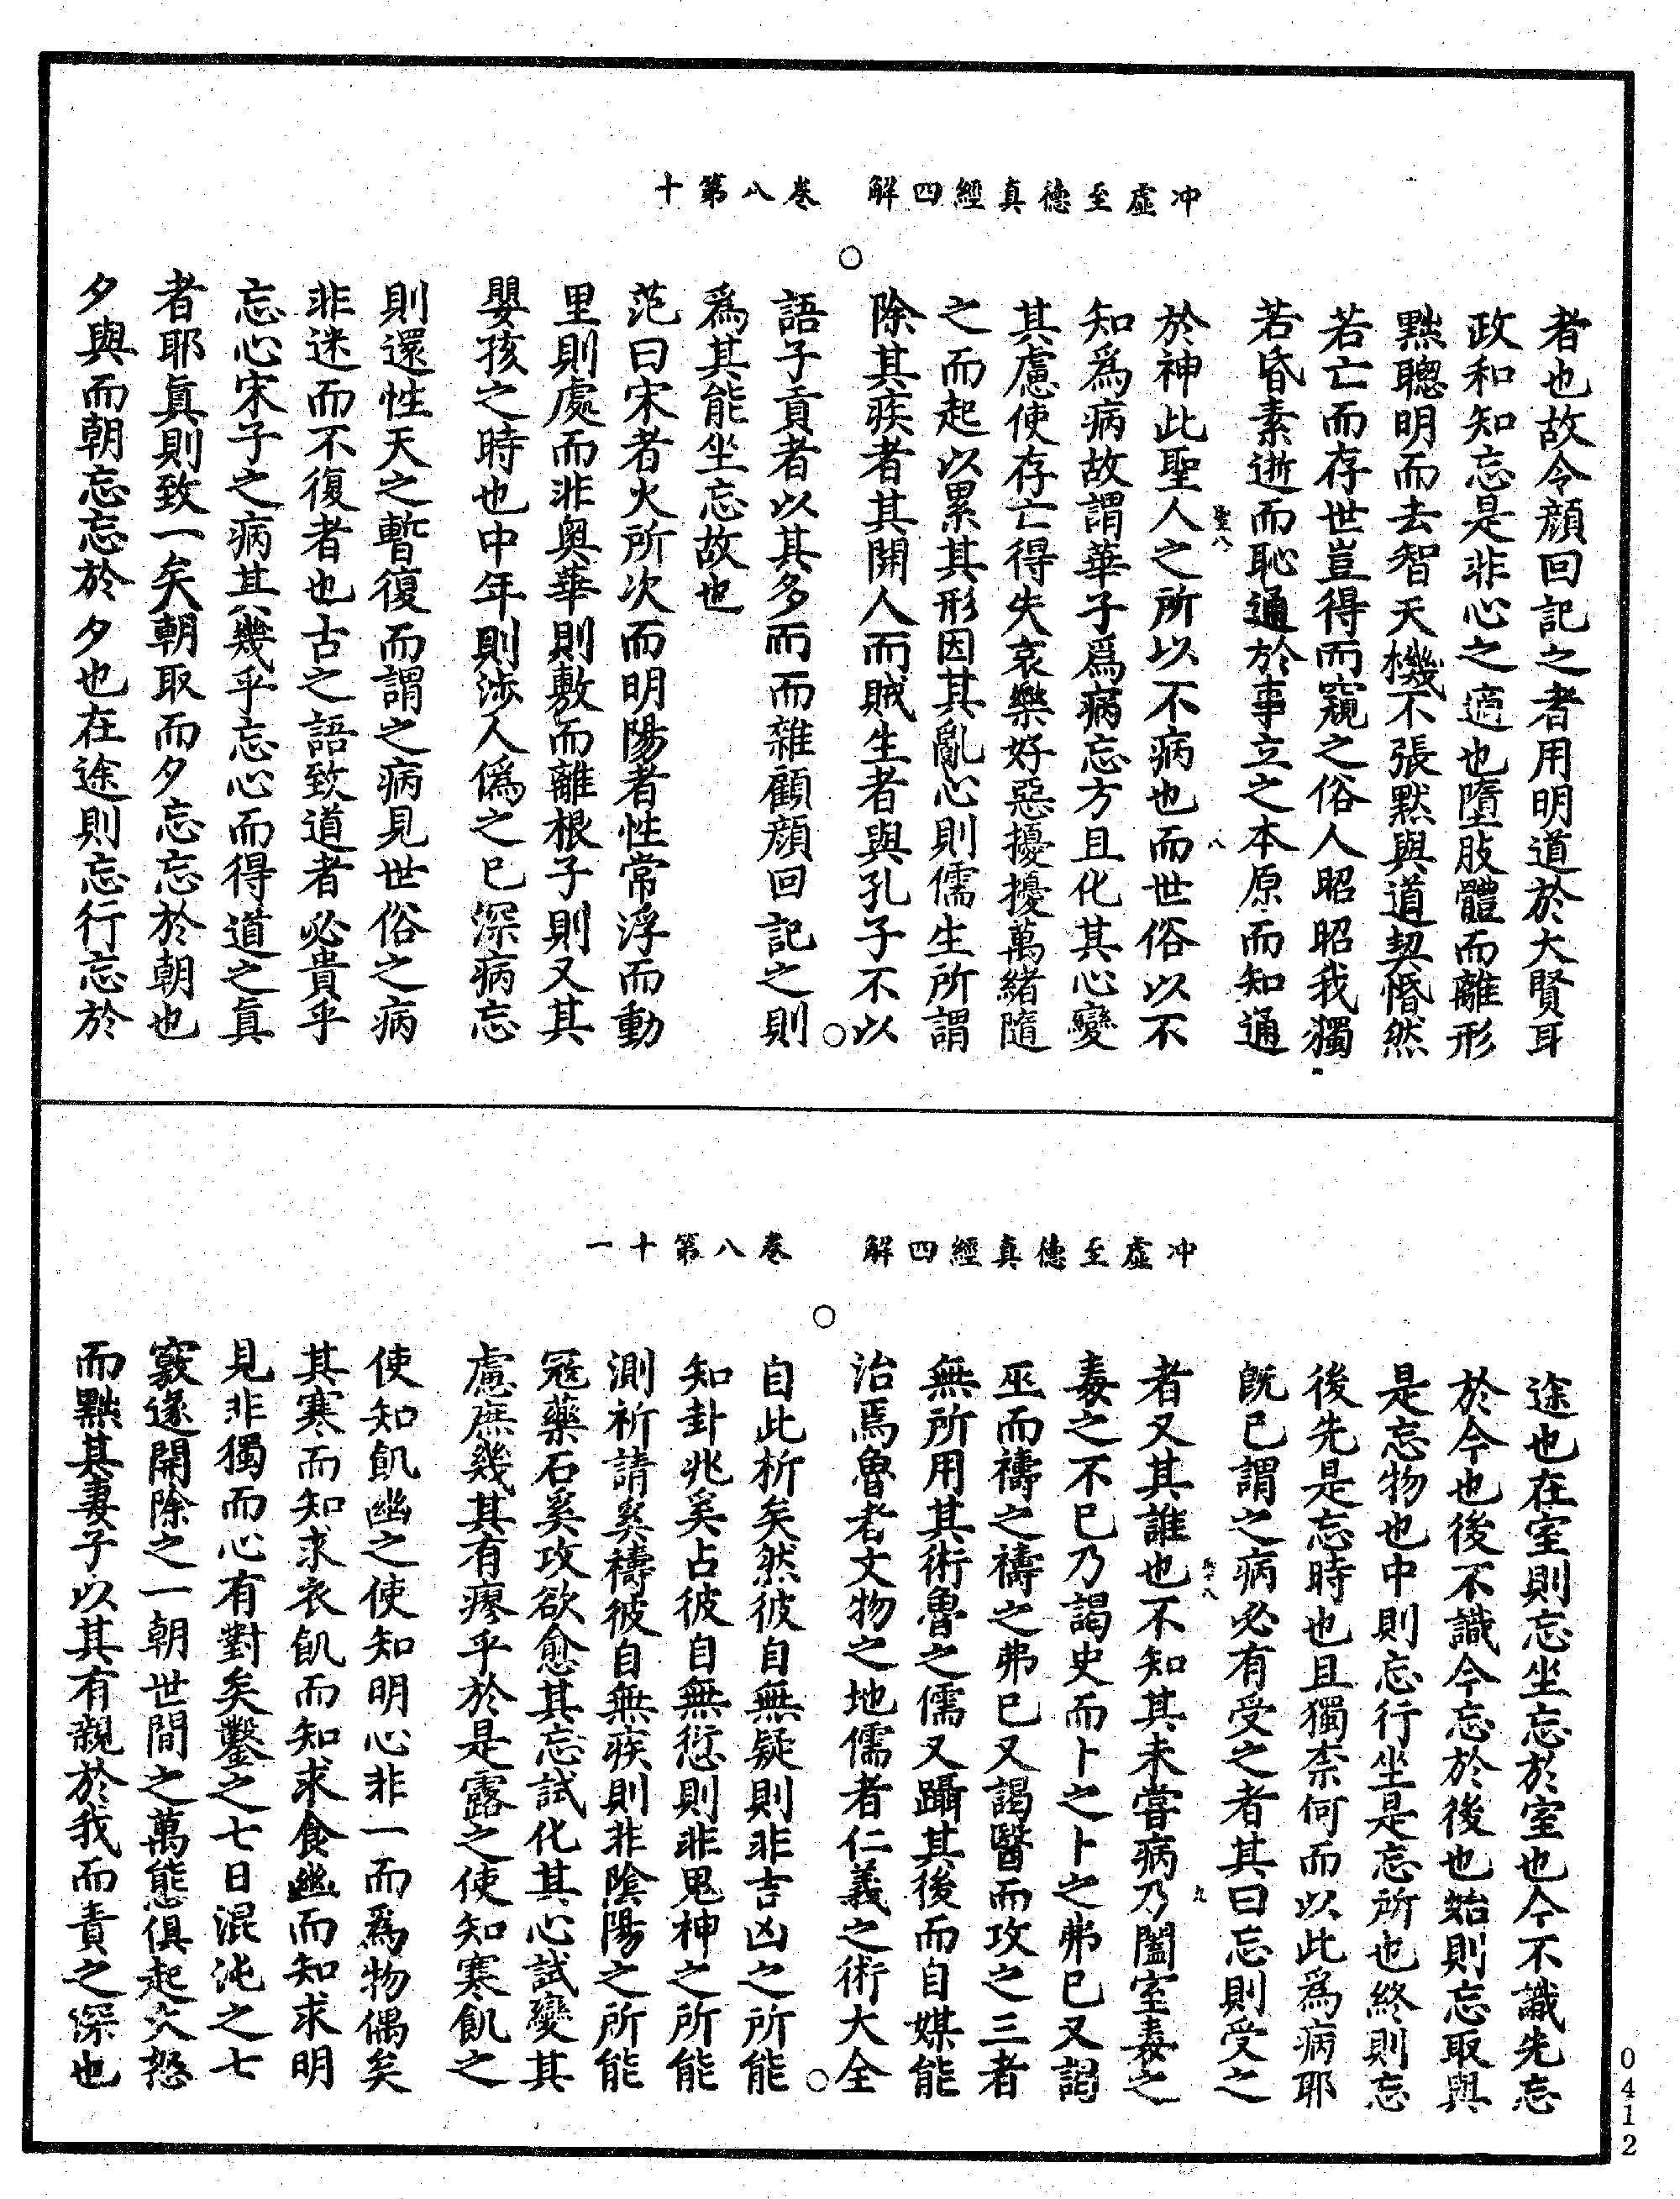 冲虛至德真經四解　卷八第十
者也故令顏回記之者用明道於大賢耳
政和知忘是非心之適也墮肢體而離形
黜聰明而去智天機不張黙與道契惛然
若亡而存世豈得而窺之俗人昭昭我獨
若昏素逝而恥通於事立之本原而知通
於神此聖人之所以不病也而世俗以不
知爲病故謂華子爲病忘方且化其心變
其慮使存亡得失哀樂好惡擾擾萬緒隨
之而起以累其形因其亂心則儒生所謂
除其疾者其開人而賊生者與孔子不以
語子貢者以其多而而雜顧顏回記之則
爲其能坐忘故也
范曰宋者火所次而明陽者性常浮而動
里則處而非奥華則敷而離根子則又其
嬰孩之時也中年則涉人僞之已深病忘
則還性天之暫復而謂之病見世俗之病
非迷而不復者也古之語致道者必貴乎
忘心宋子之病其幾乎忘心而得道之真
者耶真則致一矣朝取而夕忘忘於朝也
夕與而朝忘忘於夕也在途則忘行忘於
八
冲虛至德真經四解　卷八第十一
途也在室則忘坐忘於室也今不識先忘
於今也後不識今忘於後也始則忘取與
是忘物也中則忘行坐是忘所也終則忘
後先是忘時也且獨柰何而以此爲病耶
既已謂之病必有受之者其曰忘則受之
者又其誰也不知其未嘗病乃闔室毒之
毒之不已乃謁史而卜之卜之弗已又謁
巫而禱之禱之弗已又謁醫而攻之三者
無所用其術魯之儒又躡其後而自媒能
治焉魯者文物之地儒者仁義之術大全
自此析矣然彼自無疑則非吉凶之所能
知卦兆奚占彼自無愆則非鬼神之所能
測祈請奚禱彼自無疾則非陰陽之所能
冦藥石奚攻欲愈其忘試化其心試變其
慮庶幾其有瘳乎於是露之使知寒飢之
使知飢幽之使知明心非一而爲物偶矣
其寒而知求衣飢而知求食幽而知求明
見非獨而心有對矣鑿之七日混沌之七
竅遂開除之一朝世間之萬態俱起大怒
而黜其妻子以其有親於我而責之深也
九
0412